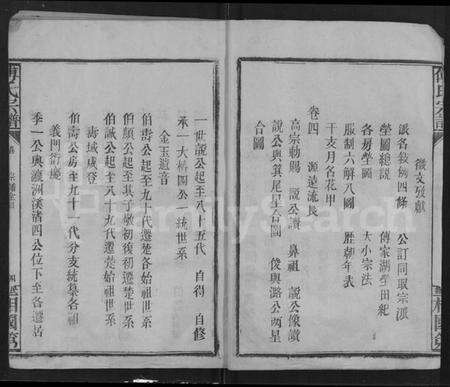 徵文考獻
派名敘例四條 公訂同取宗派
塋圖總說 傅家湖莊田紀
各房塋圖 大小宗法
服制六解八圖 歷朝年表
干支月名花甲
卷四 源遠流長
高宗勅賜 說公讚 鼻祖 說公像讚
說公與箕尾星合圖 俊與潞公兩星
合圖
一世說公起至八十五代 自得 自修
承一大格闊公一統世系
金玉遺音
伯壽公起至九十代遷楚各始祖世系
伯顏公起至其子嫩初後初遷楚世系
伯誠公起至八十九代遷楚始祖世系
壽域咸登
伯壽公房至九十一代分支統集各祖
義門衍慶
季一公與瀛洲溪渚四公位下至各遷居
傅氏宗譜
四
相國第
FamilySearch